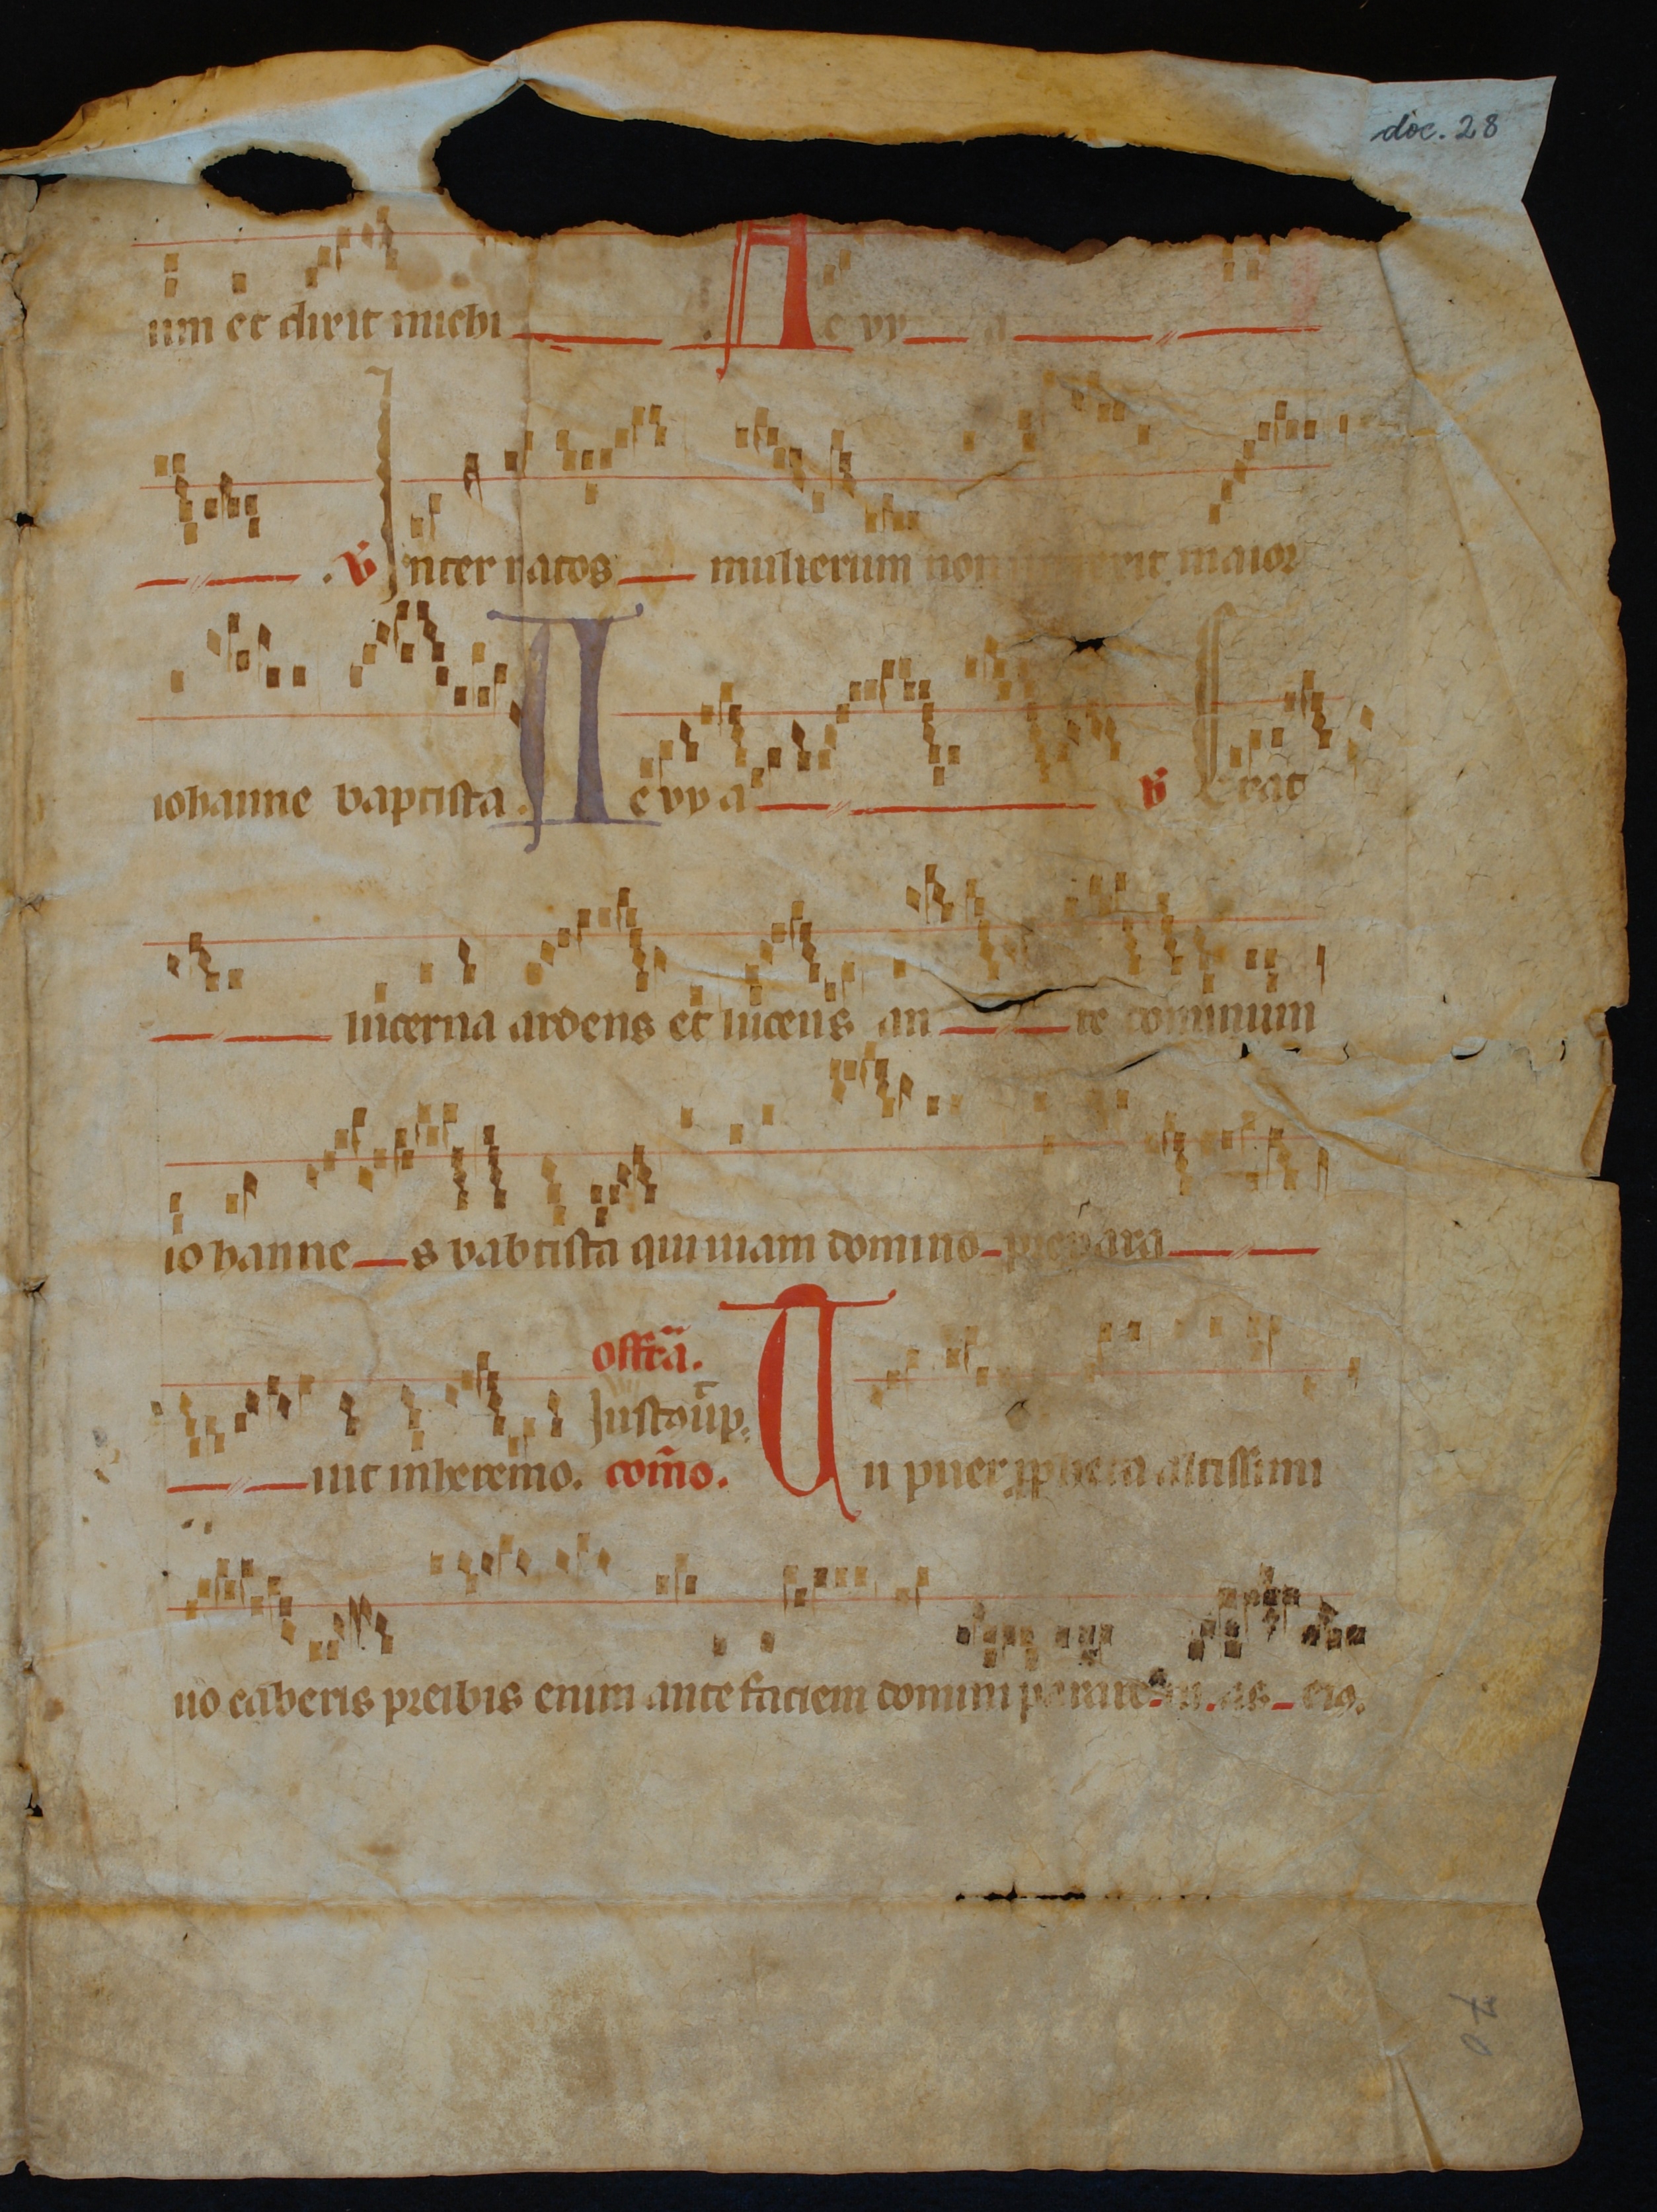 doc. 28
um et dixit michi . A e vy a
. V Inter natos mulierum non maior
iohanne baptista. A e vy a V Erat
lucerna ardens et lucens an te dominum
io hanne s babtista qui uiam domino prepara
offrã.
Iustus ut p.
uit in heremo. com̃o. Tu puer propheta altissimi
uo caberis preibis enim ante faciem domini parare as eiꝯ.
70